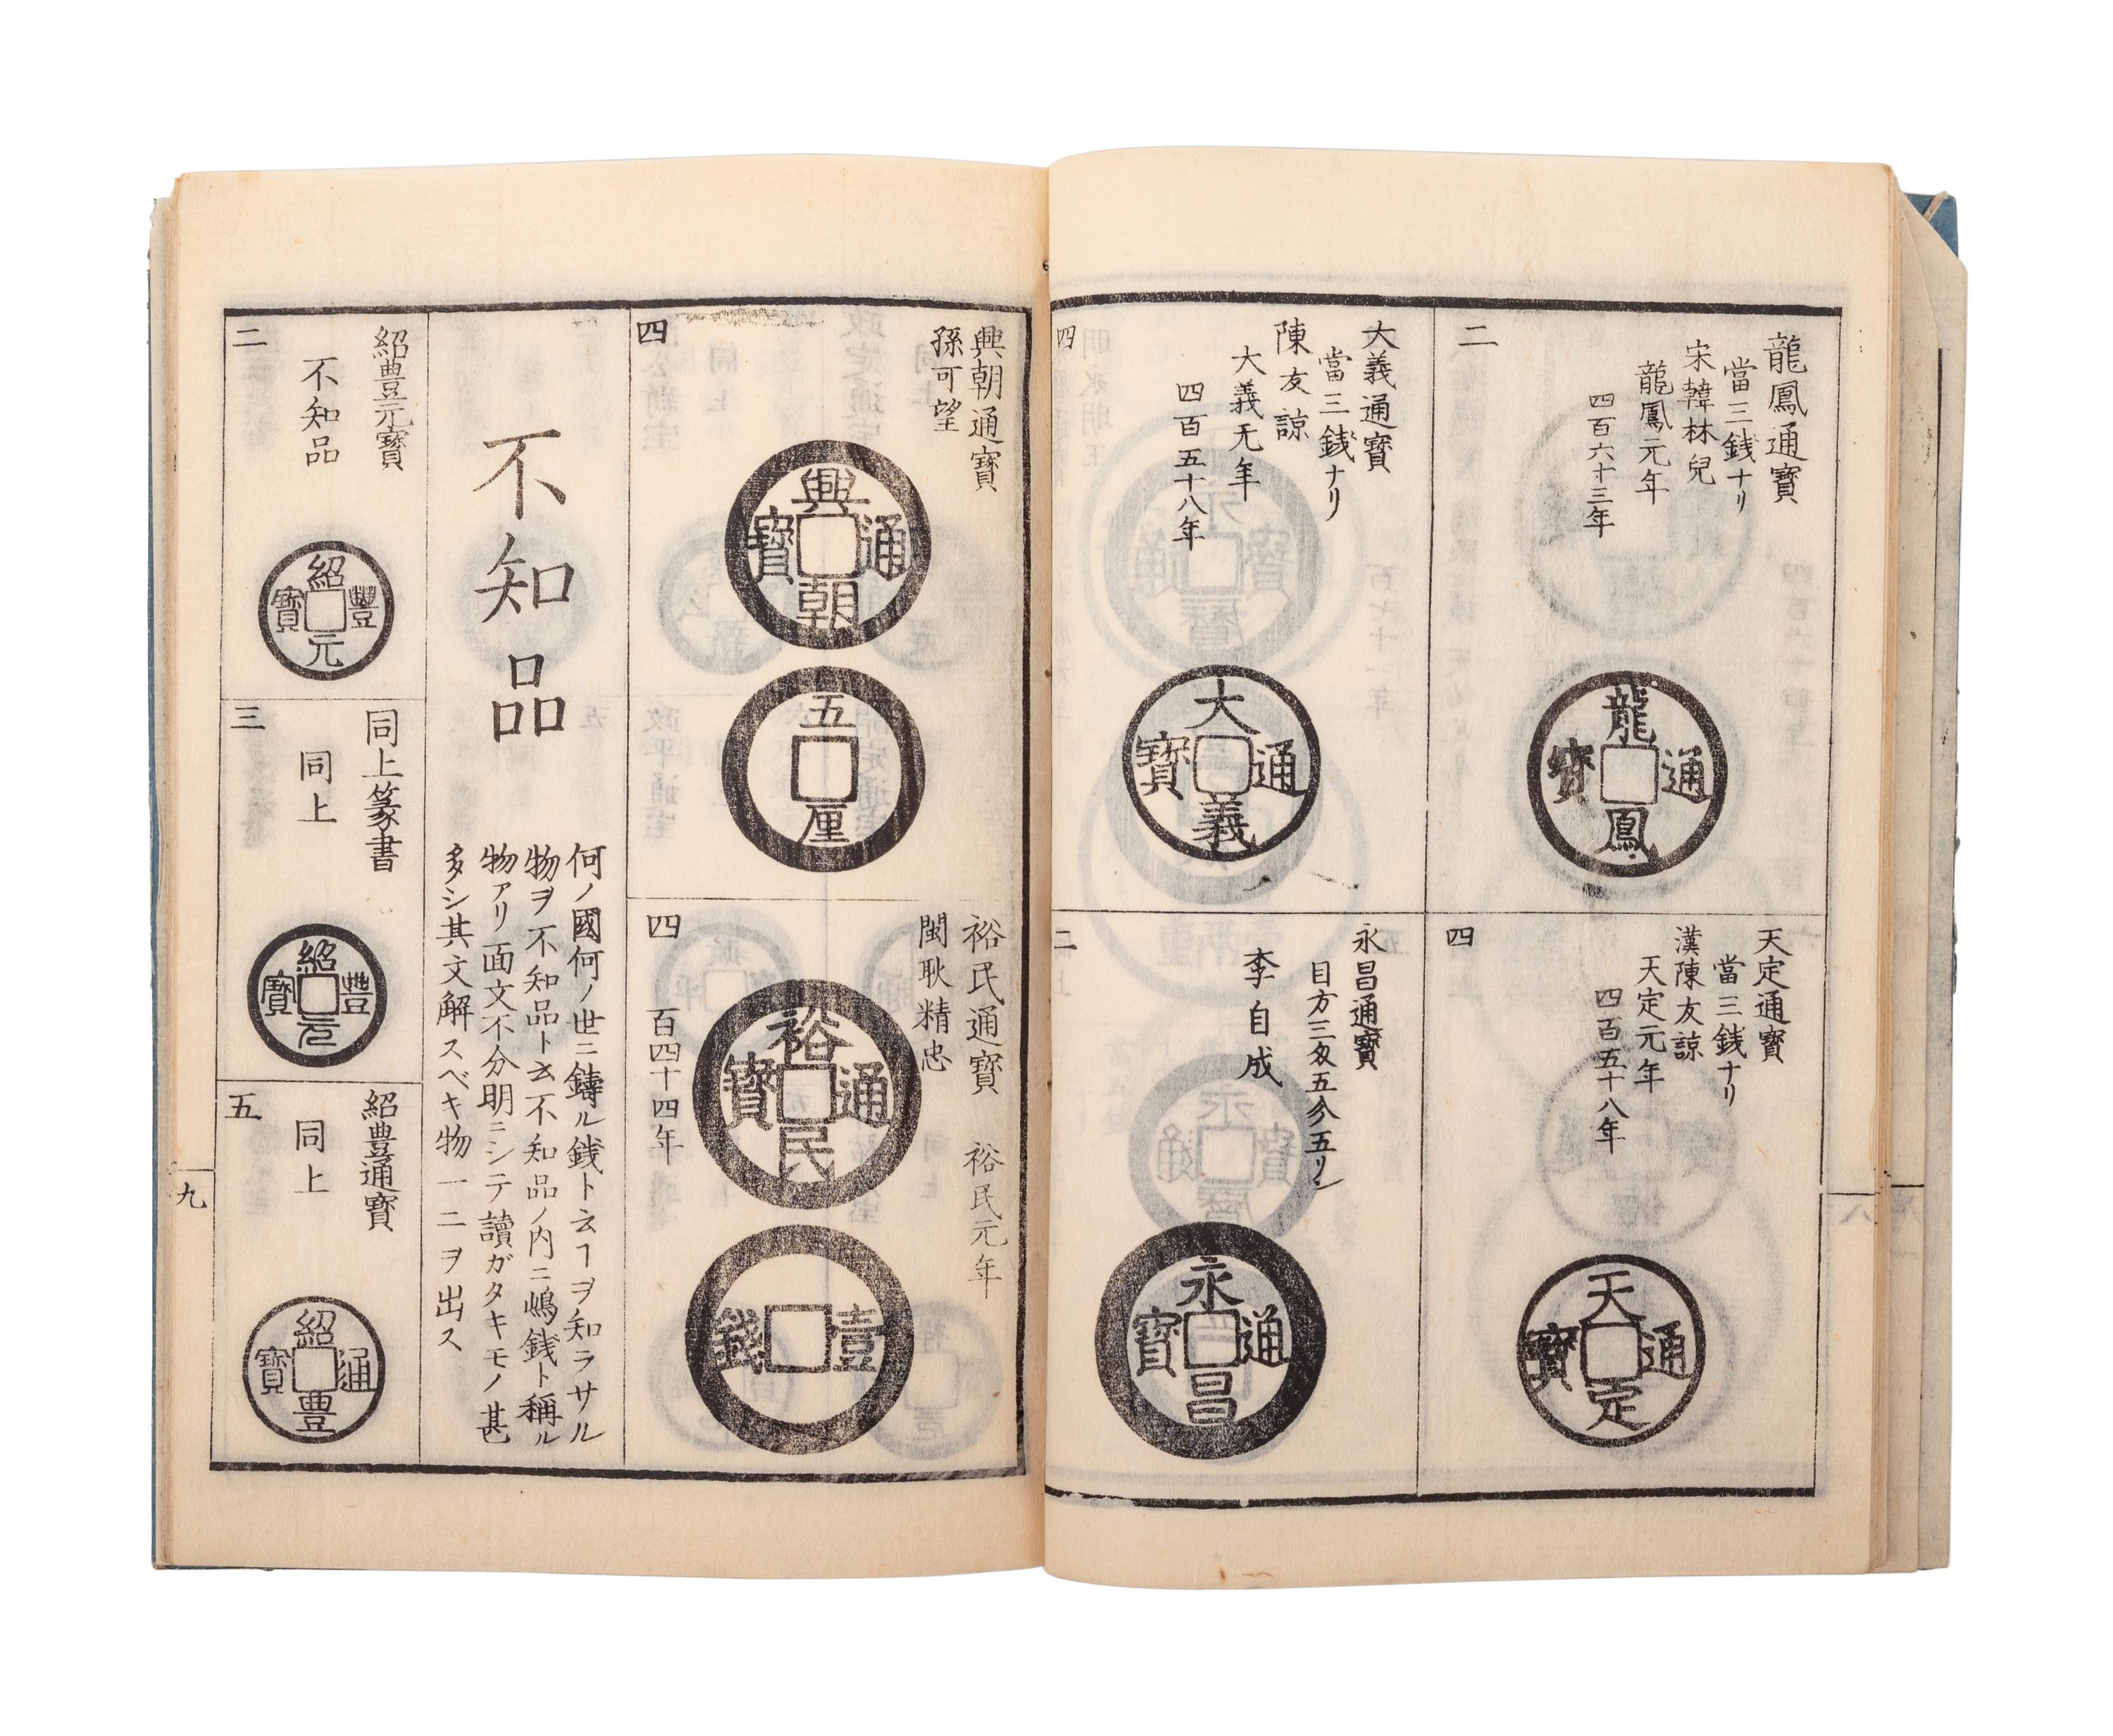 龍鳳通寶
當三銭ナリ
宋韓林兒
龍鳳元年
四百六十三年
二
龍鳳通寶
天定通寶
當三銭ナリ
漢陳友諒
天定元年
四百五十八年
四
天定通寶
大義通寶
當三銭ナリ
陳友諒
大義元年
四百五十八年
四
大義通寶
永昌通寶
目方三匁五分五リン
李自成
二
永昌通寶
興朝通寶
孫可望
四
興朝通寶
五厘
裕民通寶 裕民元年
閩耿精忠
四 百四十四年
裕民通寶
壹錢
不知品
何ノ國何ノ世ニ鑄ル銭ト云ヿヲ知ラサル
物ヲ不知品ト云不知品ノ内ニ嶋銭ト稱ル
物アリ面文不分明ニシテ讀ガタキモノ甚
多シ其文解スベキ物一二ヲ出ス
紹豊元寳
不知品
二
紹豐元寳
同上篆書
同上
三
紹豐元寳
紹豊通寳
同上
五
紹豊通寳
九